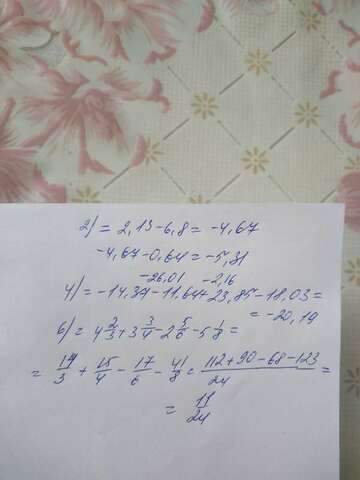 2) = 2,13-6,8 = -4,67
-4,67-0,64=-5,31
-26,01 -2,16
4) = -14,37-11,64+23,85-18,03=
= -20,19
6) = 4 2/3 + 3 3/4 - 2 5/6 - 5 1/8 =
= 14/3 + 15/4 - 17/6 - 41/8 = 112+90-68-123/24 =
= 11/24